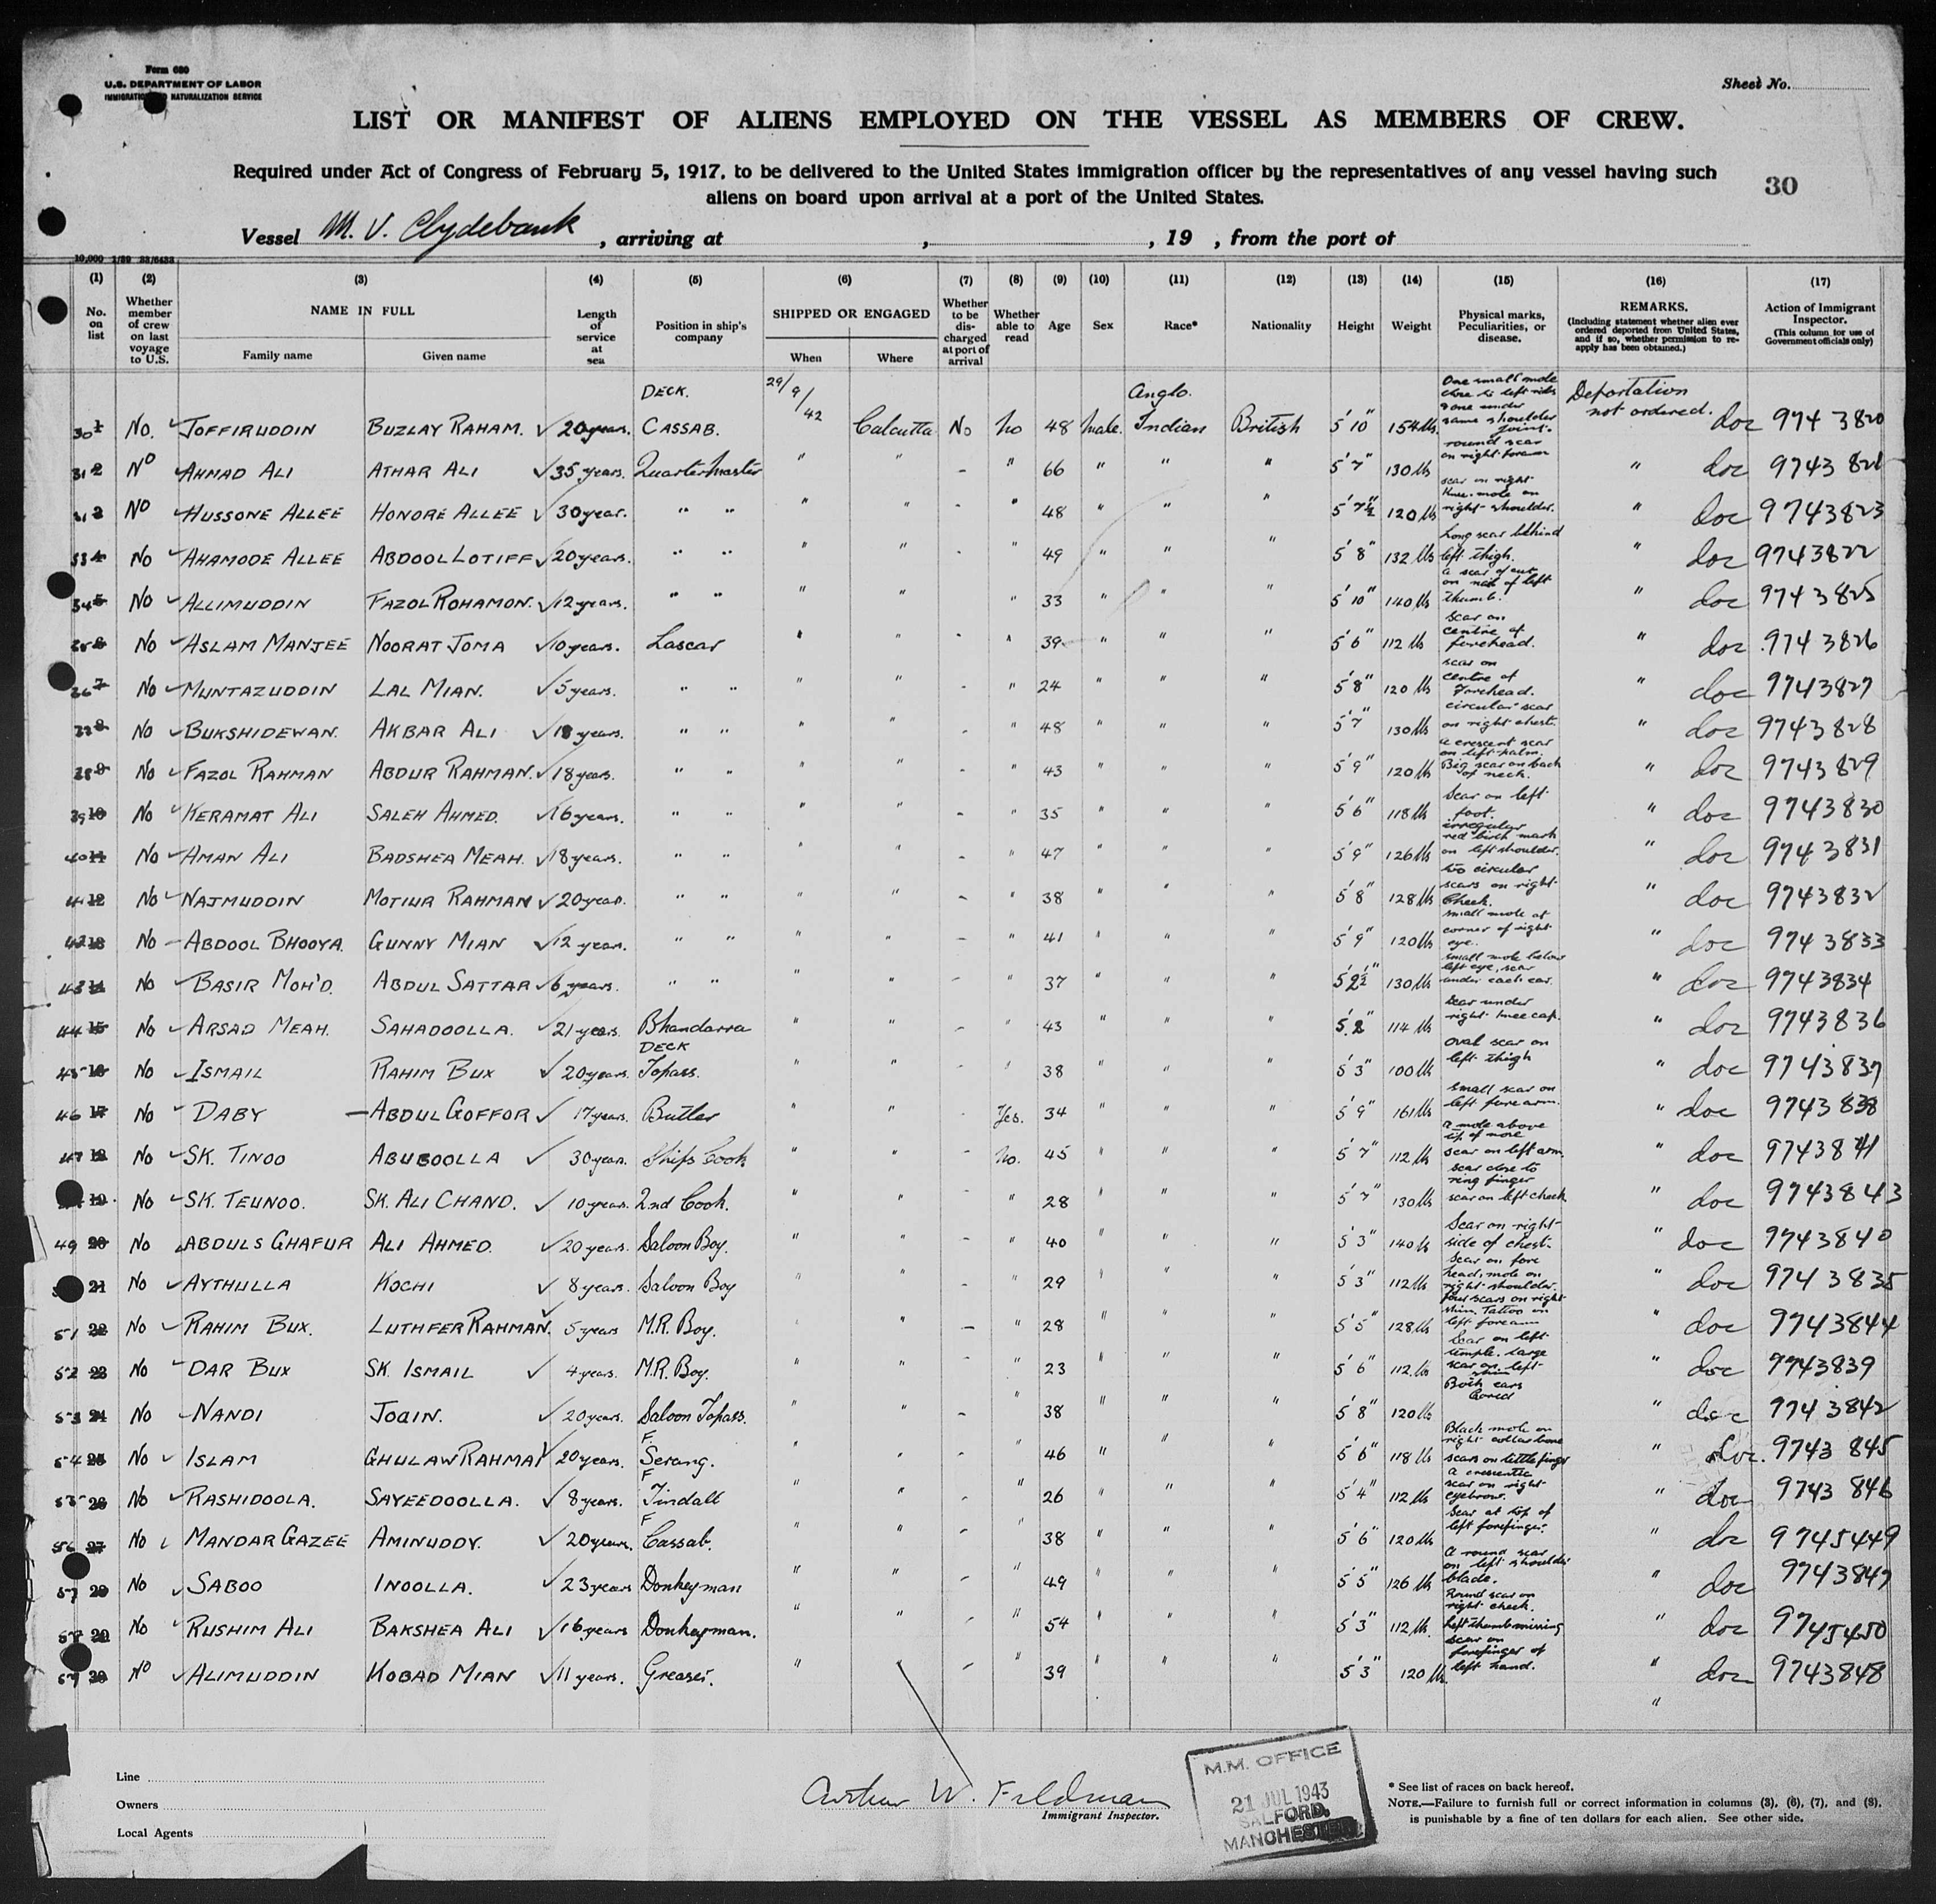 Form 680
U.S. DEPARTMENT OF LABOR
IMMIGRATION AND NATURALIZATION SERVICE
Sheet No.
LIST OR MANIFEST OF ALIENS EMPLOYED ON THE VESSEL AS MEMBERS OF CREW.
Required under Act of Congress of February 5, 1917, to be delivered to the United States immigration officer by the representatives of any vessel having such
aliens on board upon arrival at a port of the United States.
30
Vessel M. V. Clydebank, arriving at , , 19 , from the port of
10,000 1/39
(1) (2) (3) (4) (5) (6) (7) (8) (9) (10) (11) (12) (13) (14) (15) (16) (17)
No. on list
Whether member of crew on last voyage to U.S.
NAME IN FULL
Family name Given name
Length of service at sea
Position in ship's company
SHIPPED OR ENGAGED
When Where
Whether to be discharged at port of arrival
Whether able to read
Age
Sex
Race*
Nationality
Height
Weight
Physical marks, Peculiarities, or disease.
REMARKS.
(Including statement whether alien ever ordered deported from United States, and if so, whether permission to reapply has been obtained.)
Action of Immigrant Inspector.
(This column for use of Government officials only)
30 1 No. JOFFIRUDDIN BUZLAY RAHAM. 20 years. DECK. CASSAB. 29/9/42 Calcutta No No 48 Male. Anglo. Indian British 5'10" 154 lbs One small mole close to left ribs & one under same shoulder joint. Deportation not ordered. doc 974 3820
31 2 No AHMAD ALI ATHAR ALI 35 years. Quartermaster " " - " 66 " " " 5'7" 130 lbs round scar on right forearm " doc 9743 821
3 No HUSSONE ALLEE HONORE ALLEE 30 year. " " " " - " 48 " " " 5'7½" 120 lbs scar on right knee. mole on right shoulder. " doc 9743823
33 4 No AHAMODE ALLEE ABDOOL LOTIFF 20 years. " " " " - " 49 " " " 5'8" 132 lbs Long scar behind left thigh. " doc 9743822
34 5 No ALLIMUDDIN FAZOL ROHAMON. 12 years. " " " " - " 33 " " " 5'10" 140 lbs a scar of cut on neck of left thumb. " doc 9743825
6 No ASLAM MANJEE NOORAT JOMA 10 years. Lascar " " - " 39 " " " 5'6" 112 lbs Scar on centre of forehead. " doc 974 3826
7 No MUNTAZUDDIN LAL MIAN. 5 years. " " " " - " 24 " " " 5'8" 120 lbs scar on centre of Forehead. " doc 9743827
8 No BUKSHIDEWAN. AKBAR ALI 18 years. " " " " - " 48 " " " 5'7" 130 lbs circular scar on right chest. " doc 9743828
9 No FAZOL RAHMAN ABDUR RAHMAN. 18 years. " " " " - " 43 " " " 5'9" 120 lbs a crescent scar on left palm. Big scar on back of neck. " doc 9743829
39 10 No KERAMAT ALI SALEH AHMED. 16 years. " " " " - " 35 " " " 5'6" 118 lbs Scar on left foot. " doc 9743830
40 11 No AMAN ALI BADSHEA MEAH. 18 years. " " " " - " 47 " " " 5'9" 126 lbs irregular red birth mark on left shoulder. " doc 9743831
41 12 No NAJMUDDIN MOTIUR RAHMAN 20 years. " " " " - " 38 " " " 5'8" 128 lbs two circular scars on right Cheek. " doc 9743832
42 13 No ABDOOL BHOOYA. GUNNY MIAN 12 years. " " " " - " 41 " " " 5'9" 120 lbs small mole at corner of right eye. " doc 974 3833
43 14 No BASIR MOH'D. ABDUL SATTAR 6 years. " " " " - " 37 " " " 5'2½" 130 lbs small mole below left eye, scar under each ear. " doc 9743834
44 15 No ARSAD MEAH. SAHADOOLLA. 21 years. Bhandarra " " - " 43 " " " 5'2" 114 lbs Scar under right knee cap. " doc 9743836
45 16 No ISMAIL RAHIM BUX 20 years. DECK Topass. " " - " 38 " " " 5'3" 100 lbs oval scar on left thigh " doc 9743837
46 17 No DABY ABDUL GOFFOR 17 years. Butler " " - Yes. 34 " " " 5'9" 161 lbs small scar on left forearm. " doc 9743838
47 18 No SK. TINOO ABUBOOLLA 30 years. Ships Cook " " - No. 45 " " " 5'7" 112 lbs a mole above tip of nose scar on left arm. " doc 9743841
19. No SK. TEUNOO. SK. ALI CHAND. 10 years. 2nd Cook. " " - " 28 " " " 5'7" 130 lbs scar close to ring finger scar on left cheek. " doc 9743843
49 20 No ABDULS GHAFUR ALI AHMED. 20 years. Saloon Boy. " " - " 40 " " " 5'3" 140 lbs Scar on right side of chest. " doc 9743840
21 No AYTHULLA KOCHI 8 years. Saloon Boy " " - " 29 " " " 5'3" 112 lbs Scar on fore head, mole on right shoulder. " doc 9743835
51 22 No RAHIM BUX. LUTHFER RAHMAN. 5 years M.R. Boy. " " - " 28 " " " 5'5" 128 lbs four scars on right shin. Tattoo on left forearm " doc 9743844
52 23 No DAR BUX SK. ISMAIL 4 years. M.R. Boy. " " - " 23 " " " 5'6" 112 lbs Scar on left temple. large scar on left shin " doc 9743839
53 24 No NANDI JOAIN. 20 years. Saloon Topass. " " - " 38 " " " 5'8" 120 lbs Both ears bored " doc 9743842
54 25 No ISLAM GHULAW RAHMAN 20 years. F. Serang. " " - " 46 " " " 5'6" 118 lbs Black mole on right collar bone scars on little finger " doc. 9743 845
55 26 No RASHIDOOLA. SAYEEDOOLLA. 8 years. F Tindall " " - " 26 " " " 5'4" 112 lbs a crescentic scar on right eyebrow. " doc 9743 846
56 27 No MANDAR GAZEE AMINUDDY. 20 years. F Cassab. " " - " 38 " " " 5'6" 120 lbs Scar at top of left forefinger. " doc 9745449
57 28 No SABOO INOOLLA. 23 years Donkeyman " " - " 49 " " " 5'5" 126 lbs A round scar on left shoulder blade. " doc 9743847
29 No RUSHIM ALI BAKSHEA ALI 16 years Donkeyman. " " - " 54 " " " 5'3" 112 lbs Round scar on right cheek. Left thumb missing " doc 9745450
59 30 No ALIMUDDIN KOBAD MIAN 11 years. Greaser. " - " 39 " " " 5'3" 120 lbs scar on forefinger of left hand. " doc 9743848
"
Line
Owners
Local Agents
Arthur W. Feldman
Immigrant Inspector.
M.M. OFFICE
21 JUL 1943
SALFORD,
MANCHESTER
* See list of races on back hereof.
NOTE.—Failure to furnish full or correct information in columns (3), (6), (7), and (8),
is punishable by a fine of ten dollars for each alien. See other side.